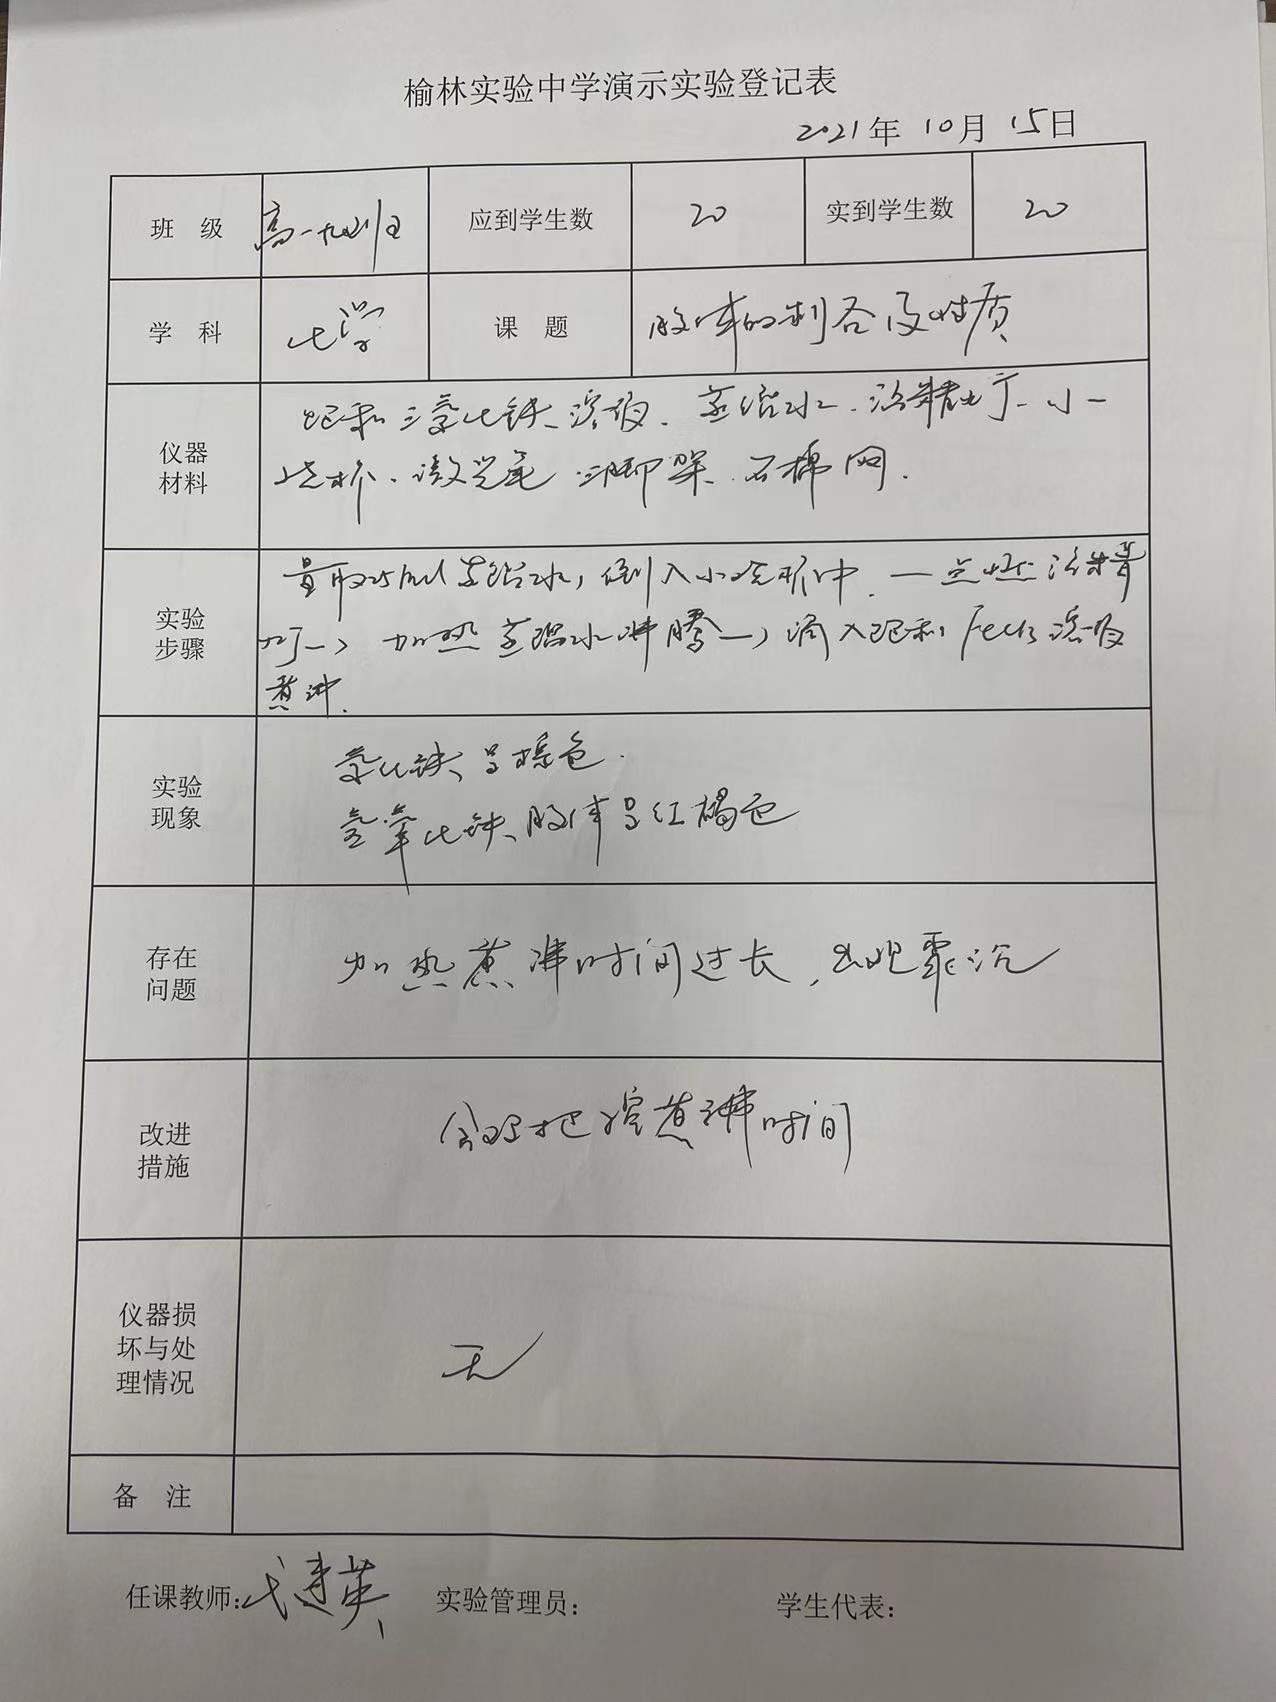 榆林实验中学演示实验登记表
2021年 10月 15日
班 级 高一九班 应到学生数 20 实到学生数 20
学 科 化学 课 题 胶体的制备及性质
仪器
材料
饱和三氯化铁溶液、蒸馏水、酒精灯、小
烧杯、激光笔 三脚架、石棉网.
实验
步骤
量取25ml蒸馏水,倒入小烧杯中.一点燃酒精
灯—> 加热蒸馏水沸腾—>滴入饱和FeCl3溶液
煮沸.
实验
现象
氯化铁呈棕色.
氢氧化铁胶体呈红褐色
存在
问题
加热煮沸时间过长,出现聚沉
改进
措施
合理把控煮沸时间
仪器损
坏与处
理情况
无
备 注
任课教师: 建英 实验管理员: 学生代表: